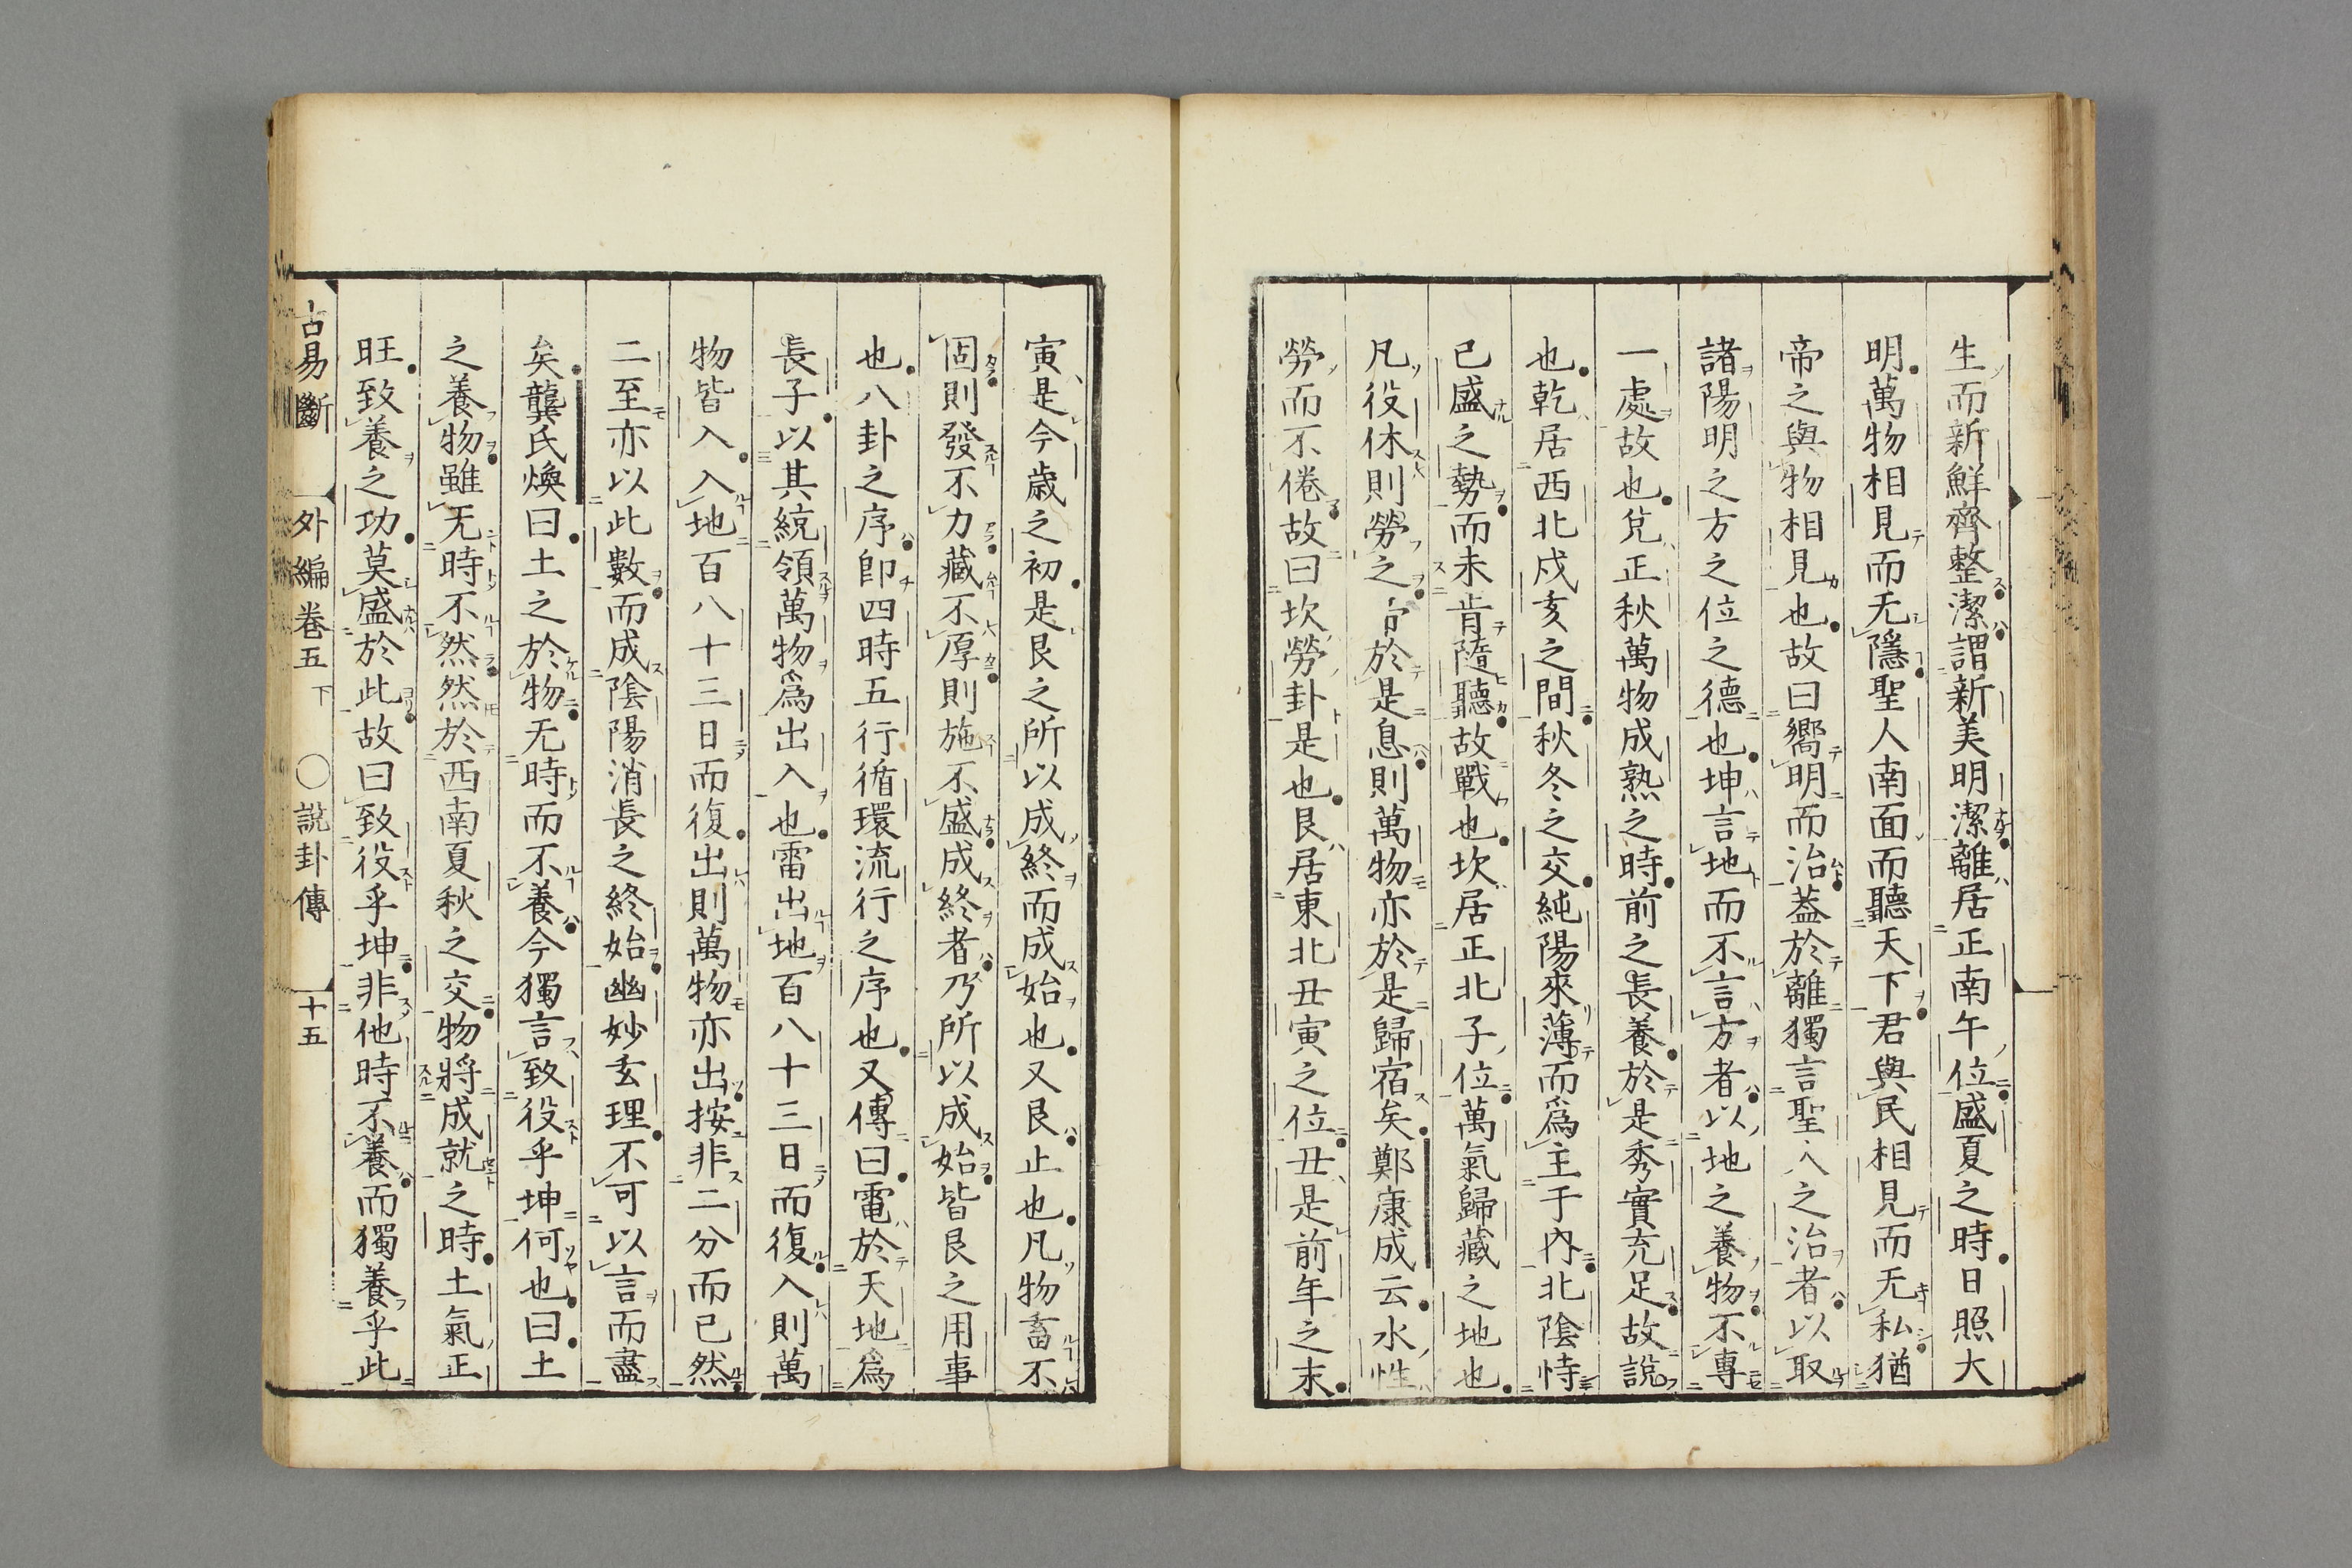 生而新鮮齊整潔謂新美明潔離居正南午位盛夏之時日照大
明萬物相見而无隱聖人南面而聽天下君與民相見而无私猶
帝之與物相見也故曰嚮明而治蓋於離獨言聖人之治者以取
諸陽明之方之位之德也坤言地而不言方者以地之養物不專
一處故也兌正秋萬物成熟之時前之長養於是秀實充足故說
也乾居西北戌亥之間秋冬之交純陽來薄而爲主于內北陰恃
已盛之勢而未肯隨聽故戰也坎居正北子位萬氣歸藏之地也
凡役休則勞之於是息則萬物亦於是歸宿矣鄭康成云水性
勞而不倦故曰坎勞卦是也艮居東北丑寅之位丑是前年之末
寅是今歲之初是艮之所以成終而成始也又艮止也凡物畜不
固則發不力藏不厚則施不盛成終者乃所以成始皆艮之用事
也八卦之序卽四時五行循環流行之序也又傳曰電於天地爲
長子以其統領萬物爲出入也雷出地百八十三日而復入則萬
物皆入入地百八十三日而復出則萬物亦出按非二分而已然
二至亦以此數而成陰陽消長之終始幽妙玄理不可以言而盡
矣龔氏煥曰土之於物无時而不養今獨言致役乎坤何也曰土
之養物雖无時不然然於西南夏秋之交物將成就之時土氣正
旺致養之功莫盛於此故曰致役乎坤非他時不養而獨養乎此
古易斷 外編卷五 下 〇說卦傳 十五